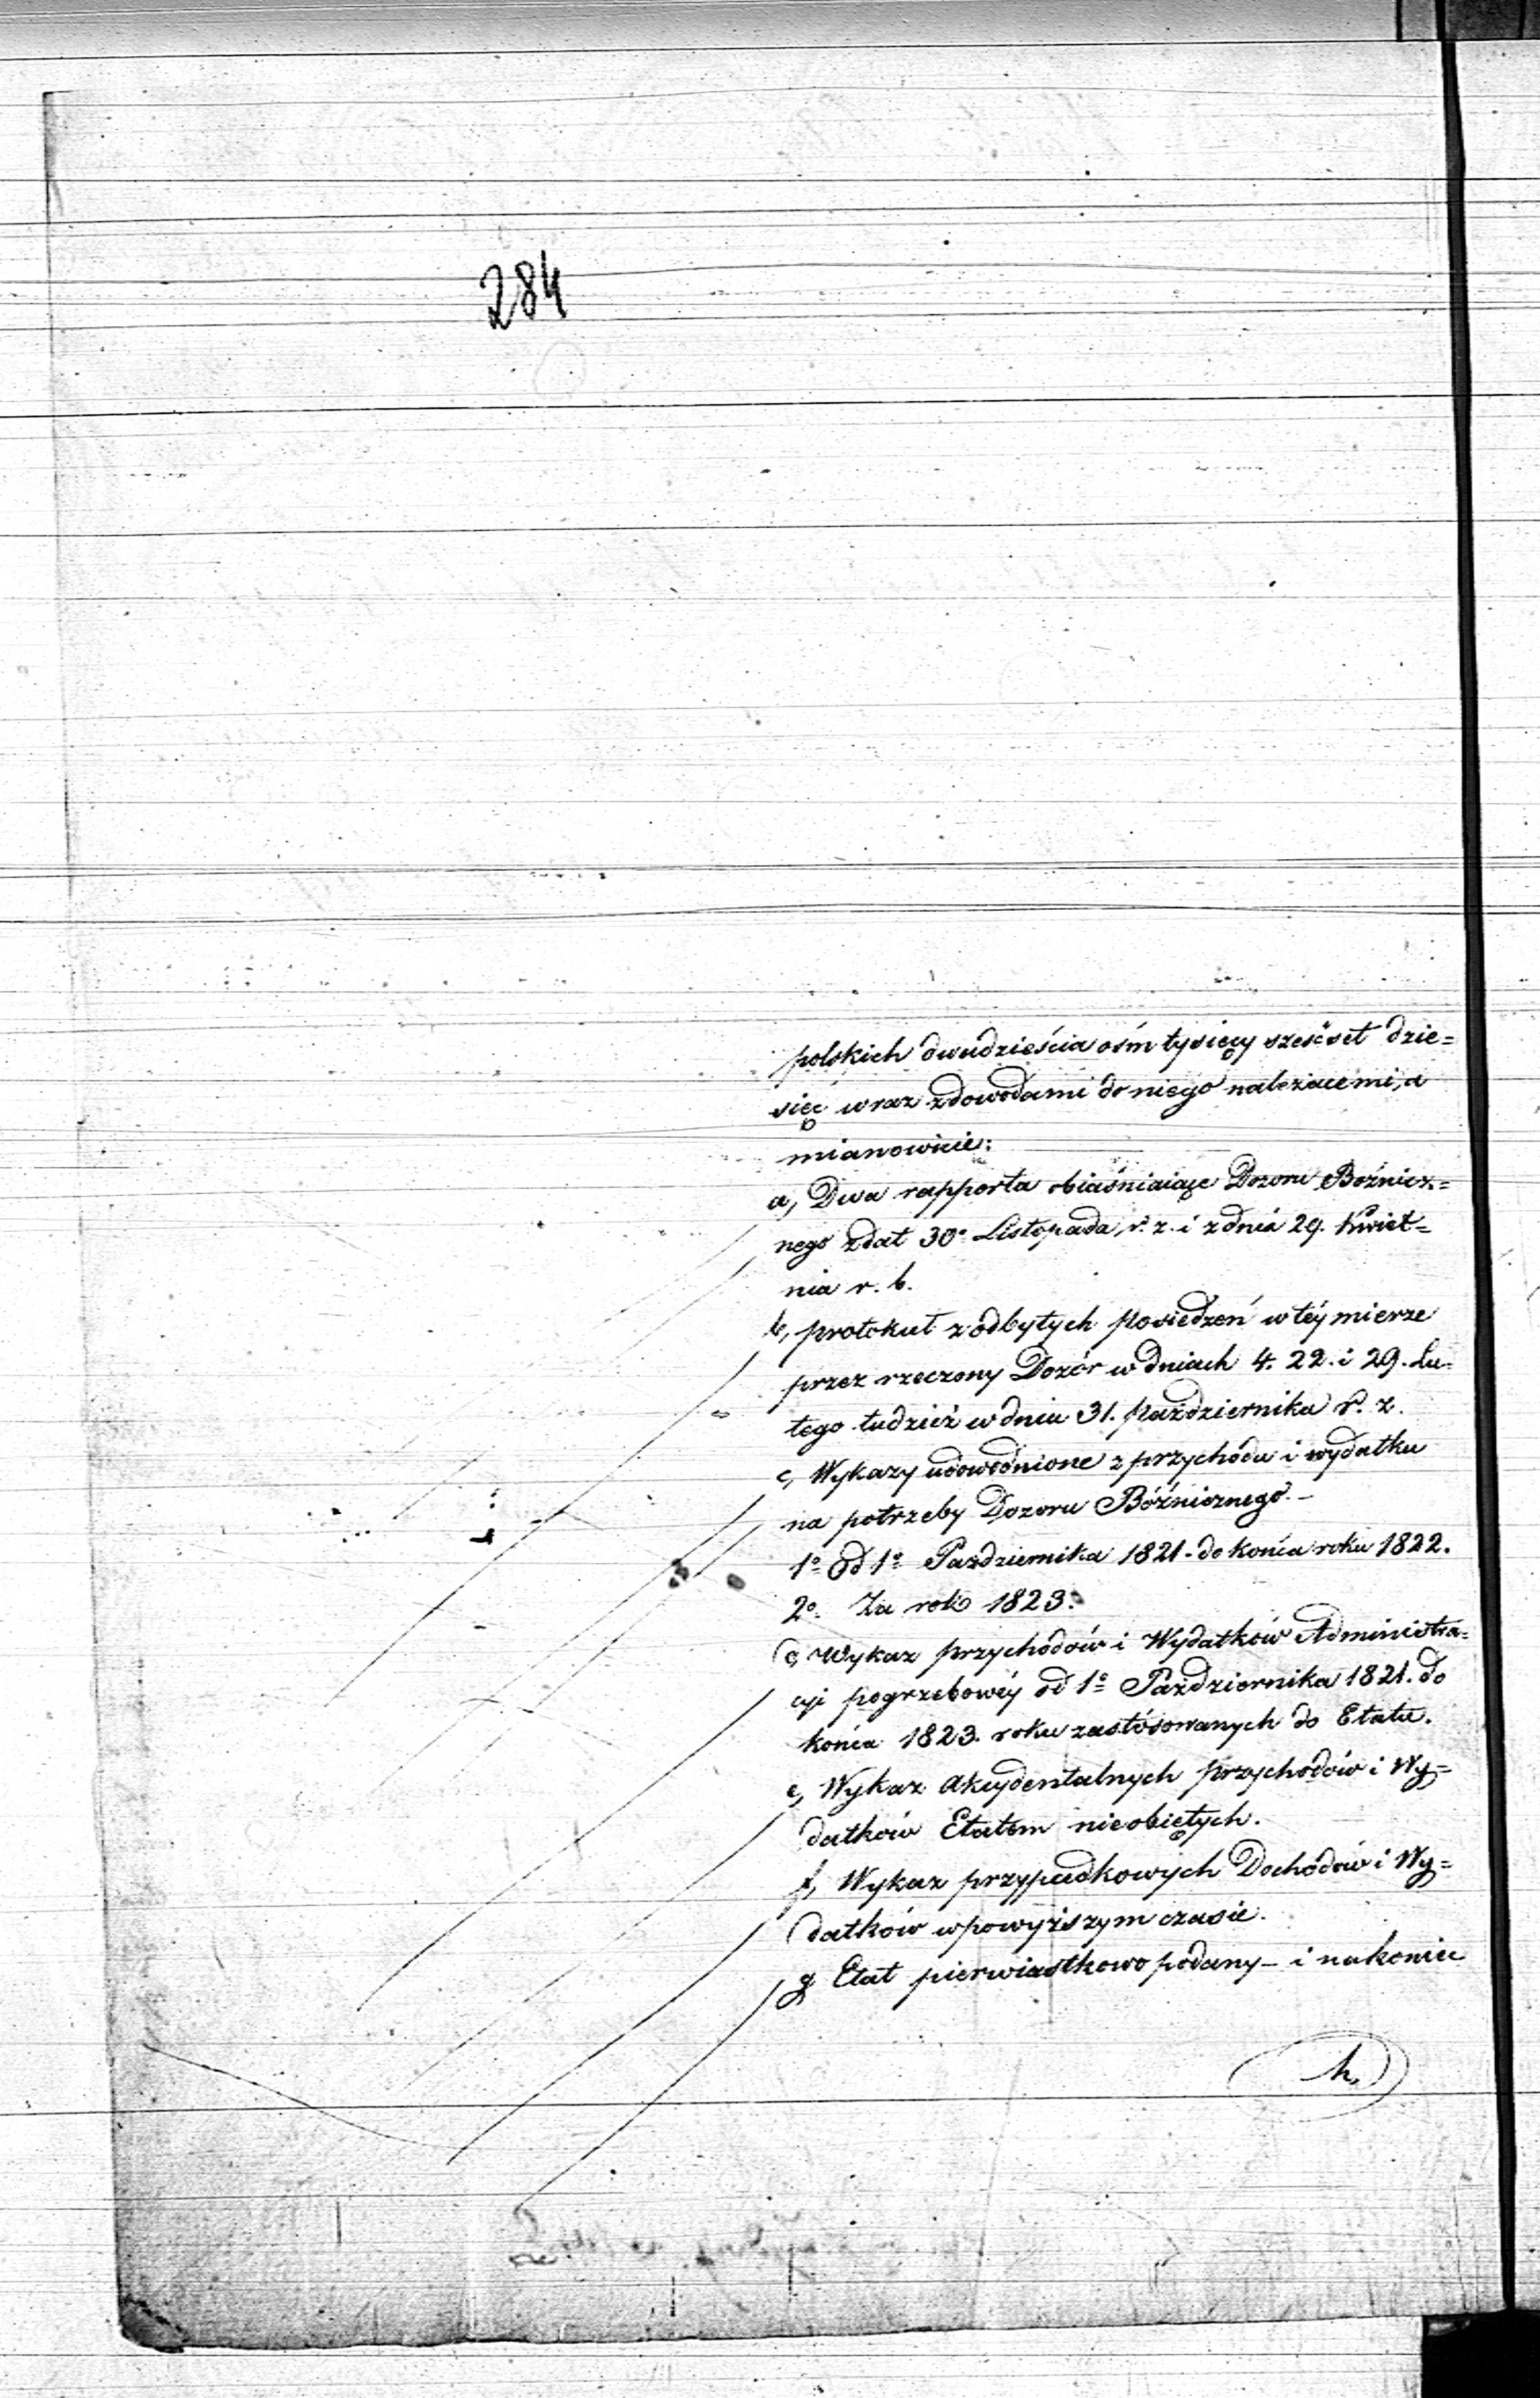 284
polskich dwudzieścia ośm tysięcy sześćset dzie=
sięć wraz z dowodami do niego należącemi, a
mianowicie:
a, Dwa rapporta obiaśniaiące Dozoru Boźnicz=
nego z dat 30º Listopada r. z. i z dnia 29. Kwiet=
nia r. b.
b, protokuł z odbytych posiedzeń w téy mierze
przez rzeczony Dozór w dniach 4. 22. i 29. Lu=
tego tudzież w dniu 31. Października r. z.
c, Wykazy udowodnione z przychodu i wydatku
na potrzeby Dozoru Bóźnicznego. –
1º Od 1º Pazdziernika 1821. do końca roku 1822.
2º. Za rok 1823.
d, Wykaz przychodów i Wydatków Administra=
cyi pogrzebowéy od 1º Października 1821. do
końca 1823. roku zastósowanych do Etatu.
e, Wykaz Akcydentalnych przychodów i Wy=
datków Etatem nieobiętych.
f, Wykaz przypadkowych Dochodów i Wy=
datków w powyższym czasie.
g Etat pierwiastkowo podany – i nakoniec
h,